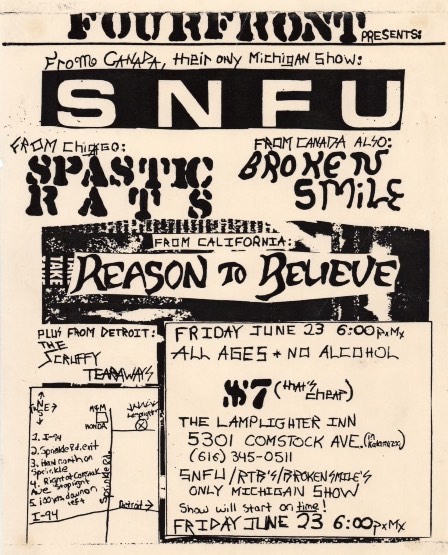 FOURFRONT PRESENTS:
From CANADA, their only Michigan Show:
SNFU
FROM Chicgo:
SPASTIC
RATS
FROM CANADA ALSO:
BROKEN
SMiLE
FROM CALIFORNIA:
REASON To BELIEVE
PLUS FROM DETROIT:
THE
SCRUFFY
TEARAWAYS
FRIDAY JUNE 23 6:00 P.M.
ALL AGES + NO ALCOHOL
$7 (that's cheap)
THE LAMPLIGHTER INN
5301 COMSTOCK AVE. (in Kalamazoo)
(616) 345-0511
SNFU/RTB'S/BROKENSMILE'S
ONLY MICHIGAN SHOW
Show will start on time!
FRIDAY JUNE 23 6:00 P.M.
HONDA
1. I-94
2. Sprinkle Rd. exit
3. north on
Sprinkle
4. Right at Comstock
Ave Stoplight
5. 100 yds down on
left
I-94
Sprinkle Rd
Detroit→